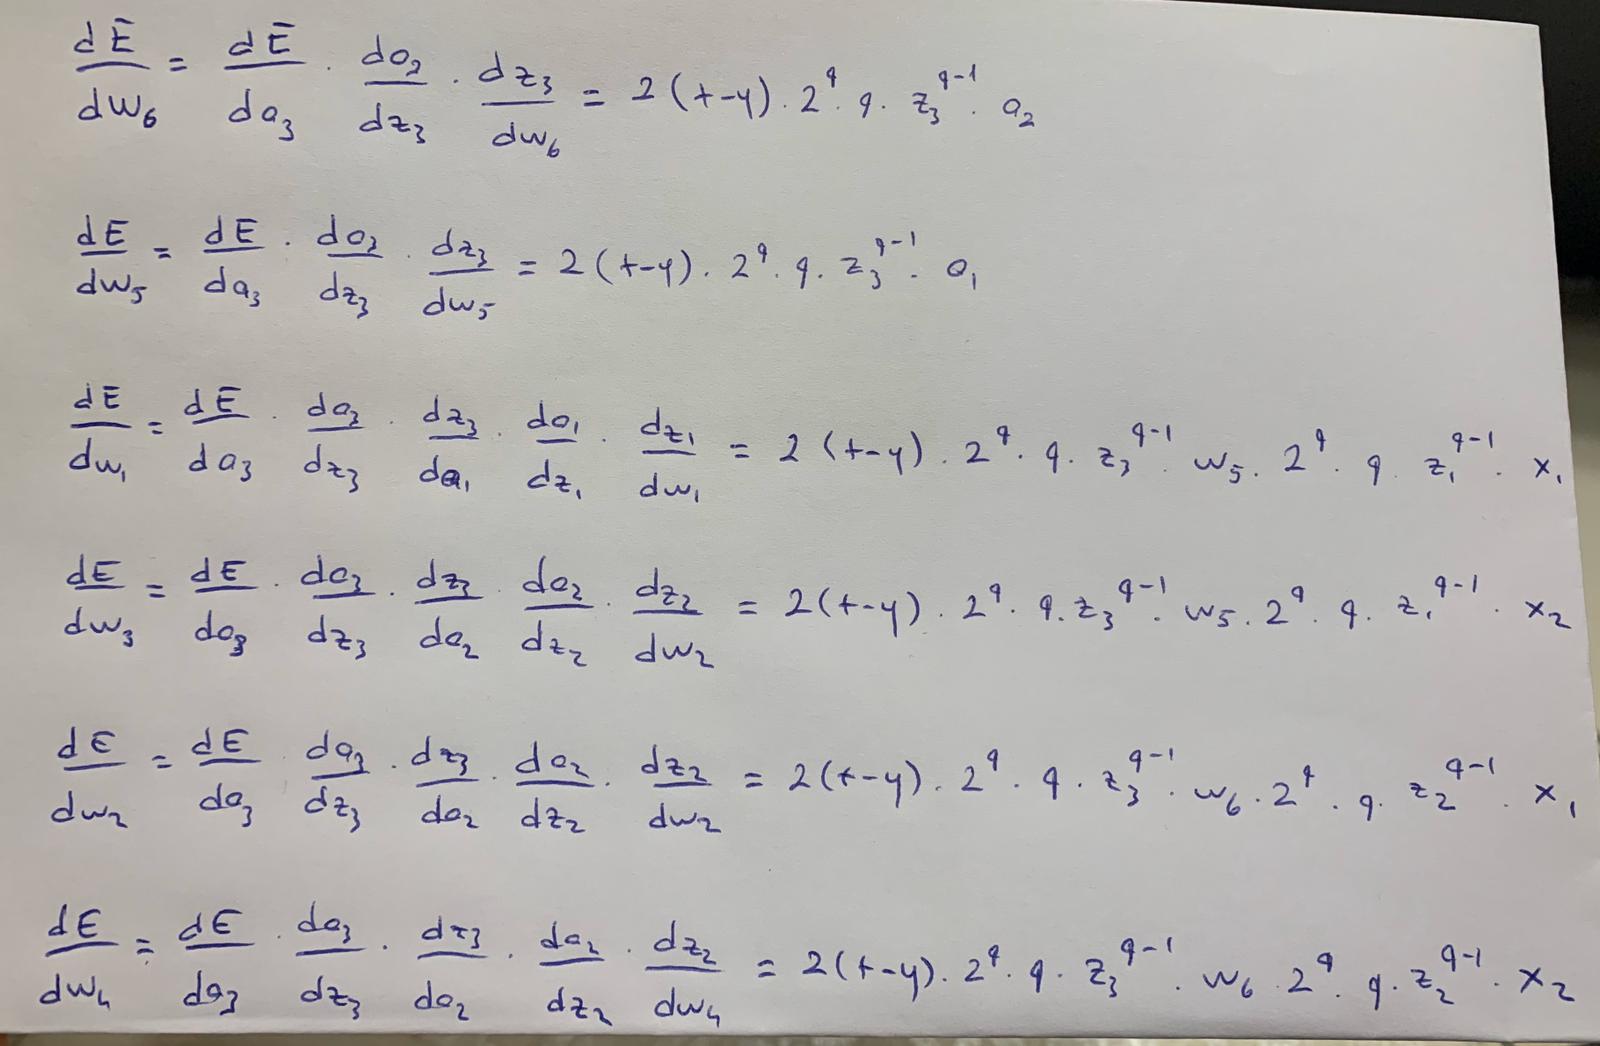 dE/dw₆ = dE/da₃ · da₃/dz₃ · dz₃/dw₆ = 2(t-y) · 2^q · q · z₃^(q-1) · a₂
dE/dw₅ = dE/da₃ · da₃/dz₃ · dz₃/dw₅ = 2(t-y) · 2^q · q · z₃^(q-1) · a₁
dE/dw₁ = dE/da₃ · da₃/dz₃ · dz₃/da₁ · da₁/dz₁ · dz₁/dw₁ = 2(t-y) · 2^q · q · z₃^(q-1) · w₅ · 2^q · q · z₁^(q-1) · x₁
dE/dw₃ = dE/da₃ · da₃/dz₃ · dz₃/da₂ · da₂/dz₂ · dz₂/dw₂ = 2(t-y) · 2^q · q · z₃^(q-1) · w₅ · 2^q · q · z₁^(q-1) · x₂
dE/dw₂ = dE/da₃ · da₃/dz₃ · dz₃/da₂ · da₂/dz₂ · dz₂/dw₂ = 2(t-y) · 2^q · q · z₃^(q-1) · w₆ · 2^q · q · z₂^(q-1) · x₁
dE/dw₄ = dE/da₃ · da₃/dz₃ · dz₃/da₂ · da₂/dz₂ · dz₂/dw₄ = 2(t-y) · 2^q · q · z₃^(q-1) · w₆ · 2^q · q · z₂^(q-1) · x₂